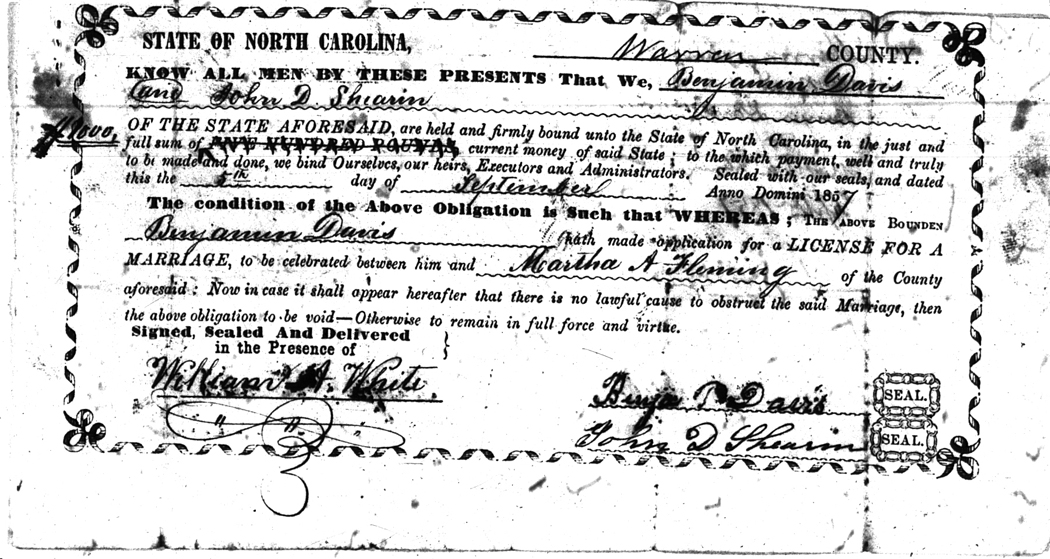 STATE OF NORTH CAROLINA, Warren COUNTY.
KNOW ALL MEN BY THESE PRESENTS That We, Benjamin Davis
and John D. Shearin
OF THE STATE AFORESAID, are held and firmly bound unto the State of North Carolina, in the just and
full sum of FIVE HUNDRED POUNDS, current money of said State; to the which payment, well and truly
to be made and done, we bind Ourselves, our heirs, Executors and Administrators. Sealed with our seals, and dated
this the 5th day of September Anno Domini 1857
The condition of the Above Obligation is Such that WHEREAS; THE ABOVE BOUNDEN
Benjamin Davis hath made application for a LICENSE FOR A
MARRIAGE, to be celebrated between him and Martha A Fleming of the County
aforesaid: Now in case it shall appear hereafter that there is no lawful cause to obstruct the said Marriage, then
the above obligation to be void—Otherwise to remain in full force and virtue.
Signed, Sealed And Delivered
in the Presence of
William A. White
Davis SEAL.
John D Shearin SEAL.